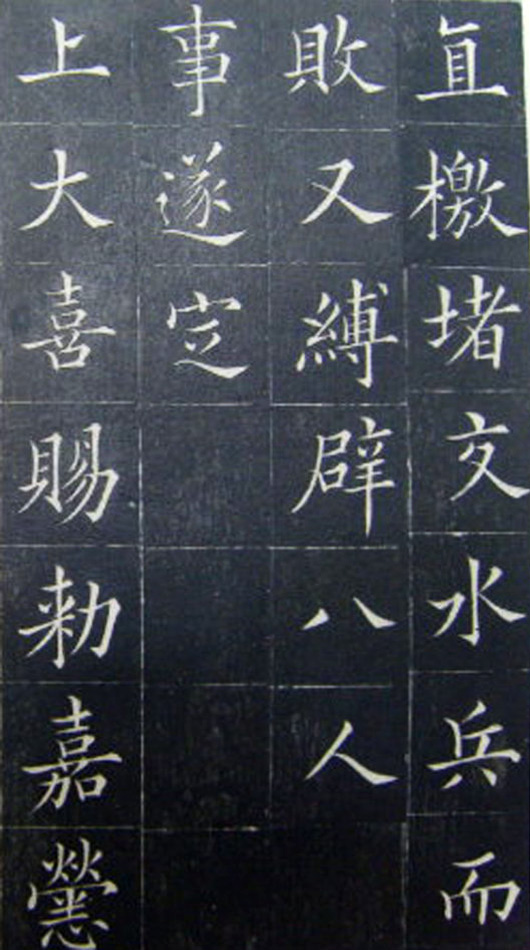 直檄堵交水兵而
敗又縛辟八人
事遂定
上大喜賜勑嘉